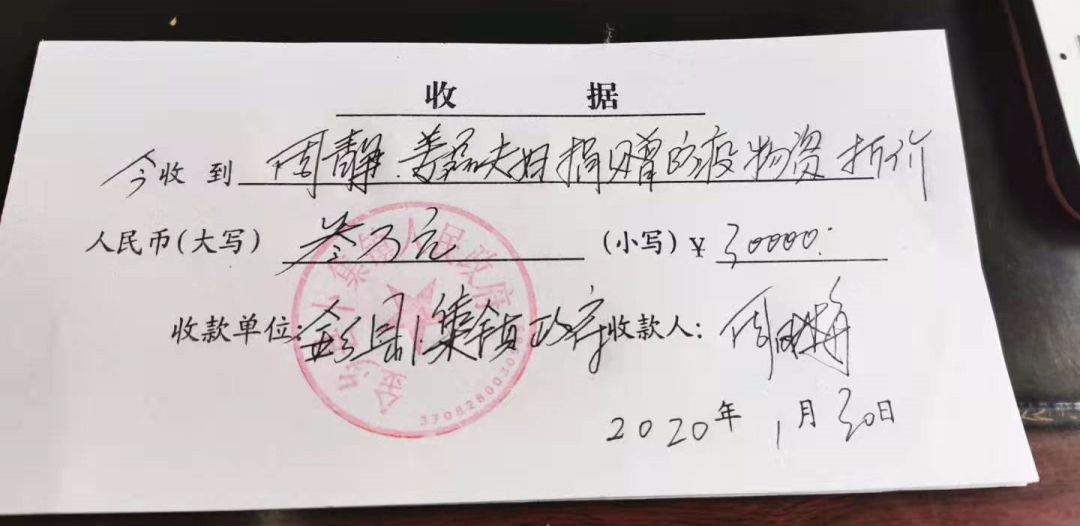 收 据
今收到 周静.姜磊夫妇捐赠防疫物资折价
人民币(大写) 叁万元 (小写)¥ 30000.
收款单位: 金乡县 集镇政府 收款人: 周
2020年1月30日
集镇人民政府